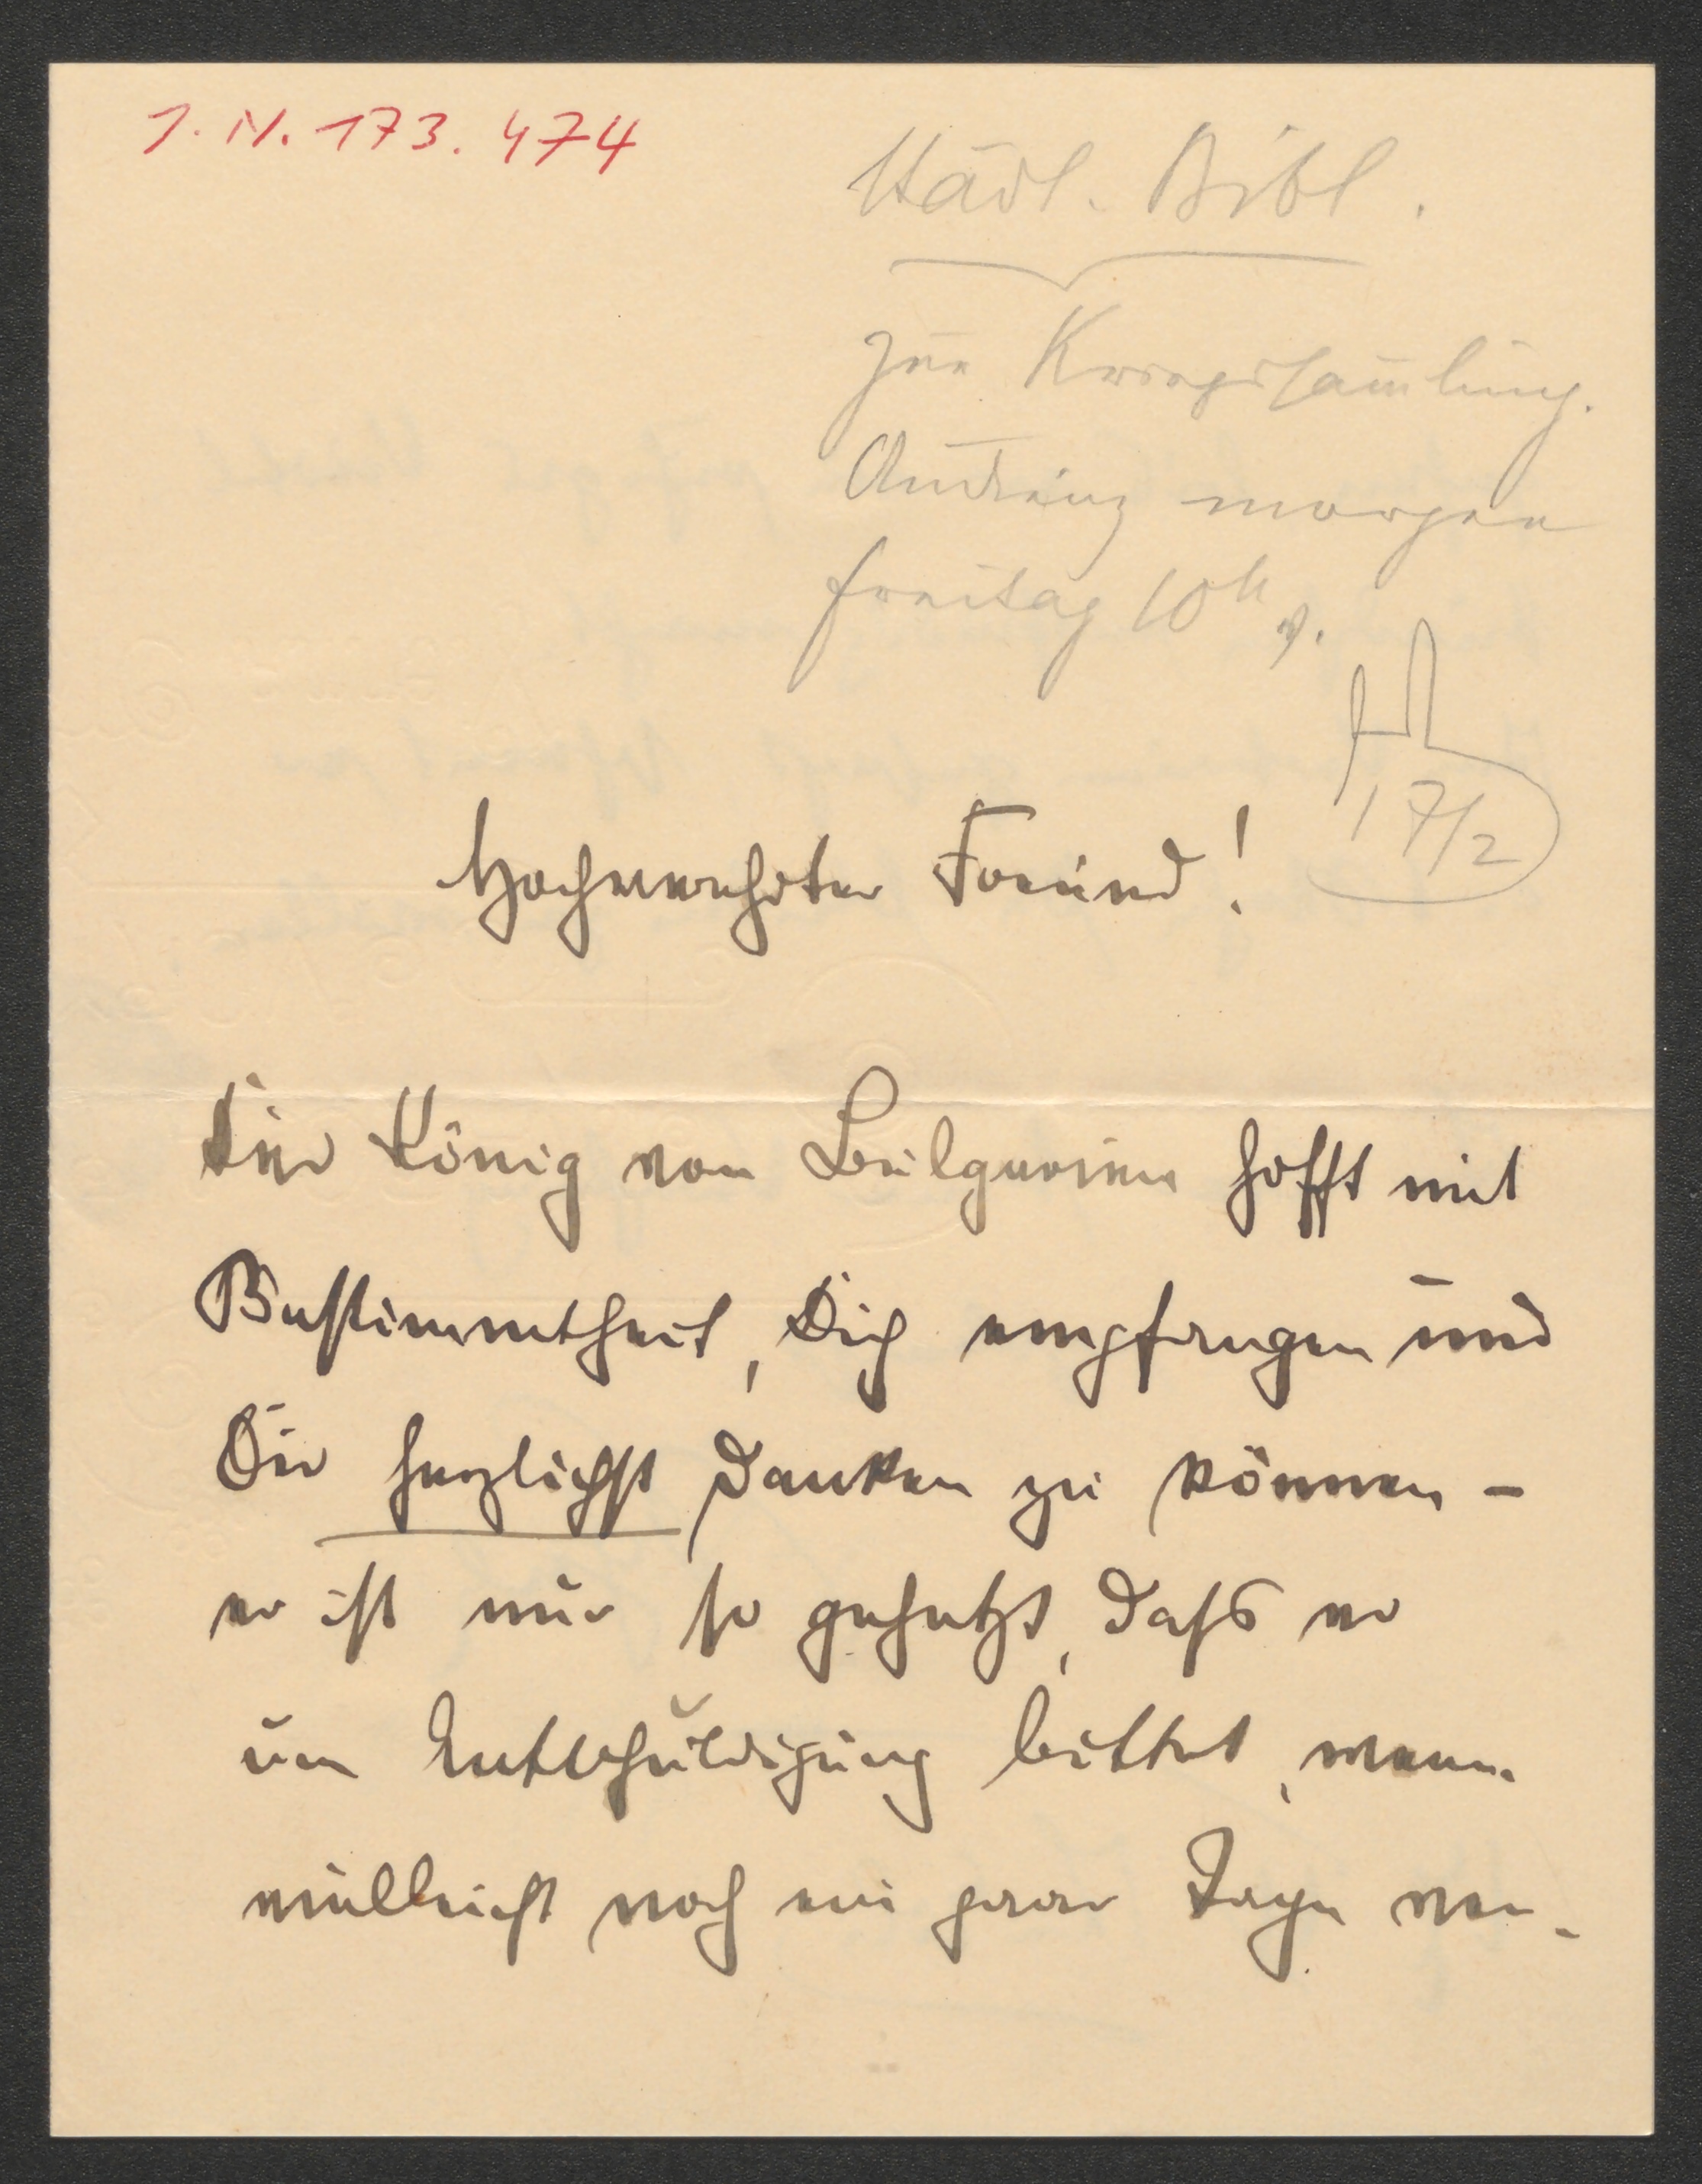 I. N. 173.474
Städt. Bibl.
zur Kriegssamlung.
Audienz morgen
Freitag 10h v.
17/2
Hochverehrter Freund!
Der König von Bulgarien hofft mit
Bestimmtheit, Dich empfangen und
Dir herzlichst danken zu können –
er ist nur so gehetzt, dass er
um Entschuldigung bittet, wenn
vielleicht noch ein paar Tage ver-